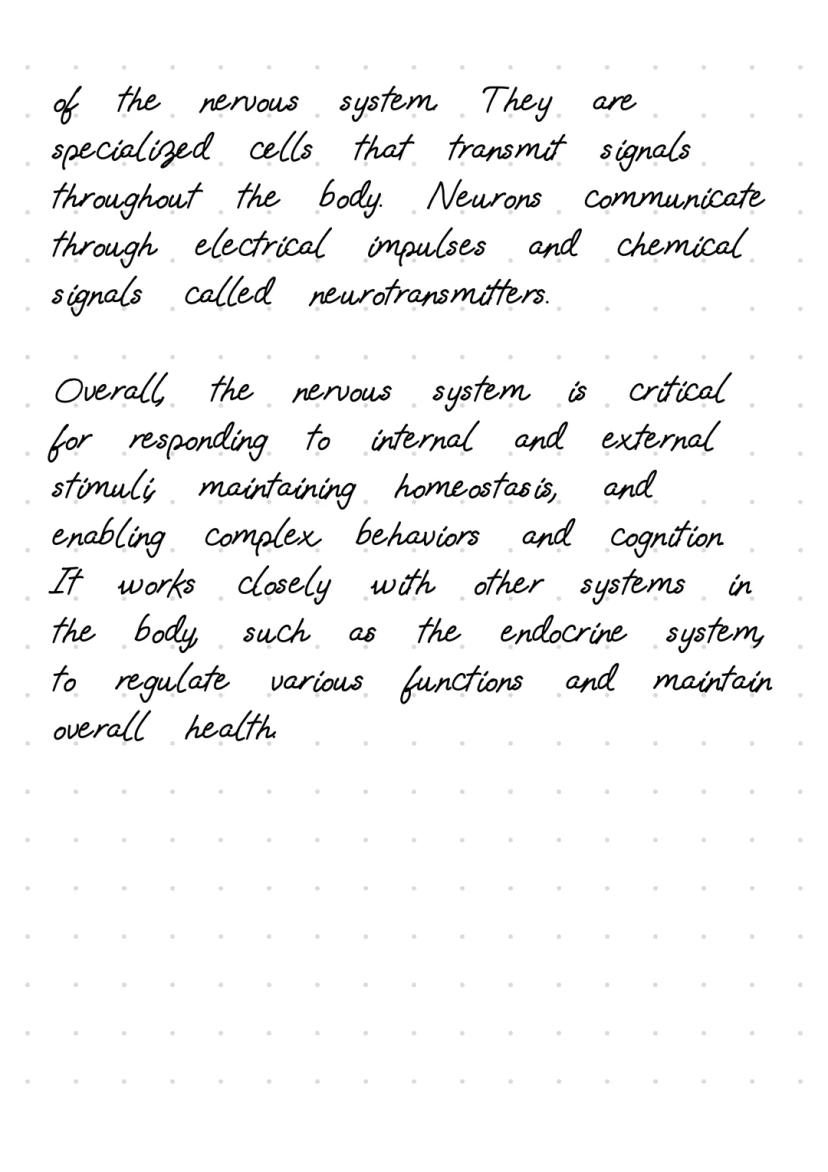 of the nervous system. They are
specialized cells that transmit signals
throughout the body. Neurons communicate
through electrical impulses and chemical
signals called neurotransmitters.

Overall, the nervous system is critical
for responding to internal and external
stimuli, maintaining homeostasis, and
enabling complex behaviors and cognition
It works closely with other systems in
the body, such as the endocrine system,
to regulate various functions and maintain
overall health.